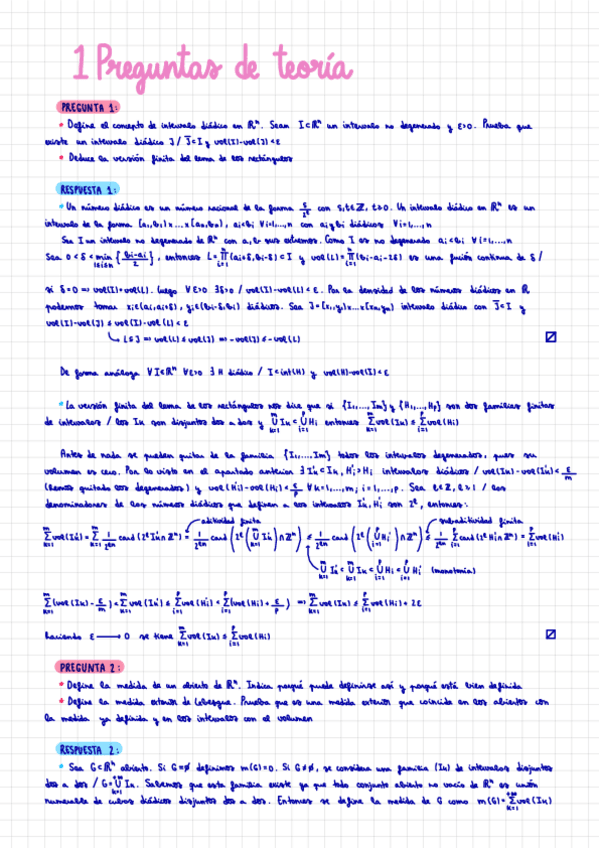 1 Preguntas de teoría
PREGUNTA 1:
• Define el concepto de intervalo diádico en ℝⁿ. Sean I⊂ℝⁿ un intervalo no degenerado y ε>0. Prueba que
existe un intervalo diádico J / J̄⊂I y vol(I)-vol(J)<ε
• Deduce la versión finita del lema de los rectángulos
RESPUESTA 1:
• Un número diádico es un número racional de la forma s/2ᵗ con s,t∈ℤ, t≥0. Un intervalo diádico en ℝⁿ es un
intervalo de la forma [a₁,b₁)x...x[aₙ,bₙ), aᵢ<bᵢ ∀i=1,...,n con aᵢ y bᵢ diádicos ∀i=1,...,n
Sea I un intervalo no degenerado de ℝⁿ con a,b sus extremos. Como I es no degenerado aᵢ<bᵢ ∀i=1,...,n
Sea 0<δ<min{(bᵢ-aᵢ)/2}, 1≤i≤n, entonces L=∏ᵢ₌₁ⁿ(aᵢ+δ,bᵢ-δ)⊂I y vol(L)=∏ᵢ₌₁ⁿ(bᵢ-aᵢ-2δ) es una función continua de δ /
si δ=0 ⇒ vol(I)=vol(L). Luego ∀ε>0 ∃δ>0 / vol(I)-vol(L)<ε. Por la densidad de los números diádicos en ℝ
podemos tomar xᵢ∈(aᵢ,aᵢ+δ), yᵢ∈(bᵢ-δ,bᵢ) diádicos. Sea J=[x₁,y₁)x...x[xₙ,yₙ) intervalo diádico con J̄⊂I y
vol(I)-vol(J) ≤ vol(I)-vol(L)<ε
L⊂J ⇒ vol(L)≤vol(J) ⇒ -vol(J)≤-vol(L)
De forma análoga ∀I⊂ℝⁿ ∀ε>0 ∃ H diádico / I⊂int(H) y vol(H)-vol(I)<ε
• La versión finita del lema de los rectángulos nos dice que si {I₁,...,Iₘ} y {H₁,...,Hₚ} son dos familias finitas
de intervalos / los Iₖ son disjuntos dos a dos y ⋃ₖ₌₁ᵐ Iₖ⊂⋃ᵢ₌₁ᵖ Hᵢ entonces ∑ₖ₌₁ᵐ vol(Iₖ) ≤ ∑ᵢ₌₁ᵖ vol(Hᵢ)
Antes de nada se pueden quitar de la familia {I₁,...,Iₘ} todos los intervalos degenerados, pues su
volumen es cero. Por lo visto en el apartado anterior ∃ Iₖ'⊂Iₖ, Hᵢ'⊃Hᵢ intervalos diádicos / vol(Iₖ)-vol(Iₖ')<ε/m
(hemos quitado los degenerados) y vol(Hᵢ')-vol(Hᵢ)<ε/p ∀k=1,...,m; i=1,...,p. Sea ℓ∈ℤ, ℓ≥1 / los
denominadores de los números diádicos que definen a los intervalos Iₖ', Hᵢ' son 2^ℓ, entonces:
aditividad finita
subaditividad finita
∑ₖ₌₁ᵐ vol(Iₖ')=∑ₖ₌₁ᵐ 1/2^ℓⁿ card(2^ℓ Iₖ'∩ℤⁿ) = 1/2^ℓⁿ card(2^ℓ(⋃ₖ₌₁ᵐ Iₖ')∩ℤⁿ) ≤ 1/2^ℓⁿ card(2^ℓ(⋃ᵢ₌₁ᵖ Hᵢ')∩ℤⁿ) ≤ 1/2^ℓⁿ ∑ᵢ₌₁ᵖ card(2^ℓ Hᵢ'∩ℤⁿ)=∑ᵢ₌₁ᵖ vol(Hᵢ')
⋃ₖ₌₁ᵐ Iₖ'⊂⋃ₖ₌₁ᵐ Iₖ⊂⋃ᵢ₌₁ᵖ Hᵢ⊂⋃ᵢ₌₁ᵖ Hᵢ' (monotonía)
∑ₖ₌₁ᵐ(vol(Iₖ)-ε/m)<∑ₖ₌₁ᵐ vol(Iₖ') ≤ ∑ᵢ₌₁ᵖ vol(Hᵢ')<∑ᵢ₌₁ᵖ(vol(Hᵢ)+ε/p) ⇒ ∑ₖ₌₁ᵐ vol(Iₖ) ≤ ∑ᵢ₌₁ᵖ vol(Hᵢ)+2ε
haciendo ε⟶0 se tiene ∑ₖ₌₁ᵐ vol(Iₖ) ≤ ∑ᵢ₌₁ᵖ vol(Hᵢ)
PREGUNTA 2:
• Define la medida de un abierto de ℝⁿ. Indica porqué puede definirse así y porqué está bien definida
• Define la medida exterior de Lebesgue. Prueba que es una medida exterior que coincide en los abiertos con
la medida ya definida y en los intervalos con el volumen
RESPUESTA 2:
• Sea G⊂ℝⁿ abierto. Si G=∅ definimos m(G)=0. Si G≠∅, se considera una familia (Iₖ) de intervalos disjuntos
dos a dos / G=⋃ₖ₌₁⁺∞ Iₖ. Sabemos que esta familia existe ya que todo conjunto abierto no vacío de ℝⁿ es unión
numerable de cubos diádicos disjuntos dos a dos. Entonces se define la medida de G como m(G)=∑ₖ₌₁⁺∞ vol(Iₖ)